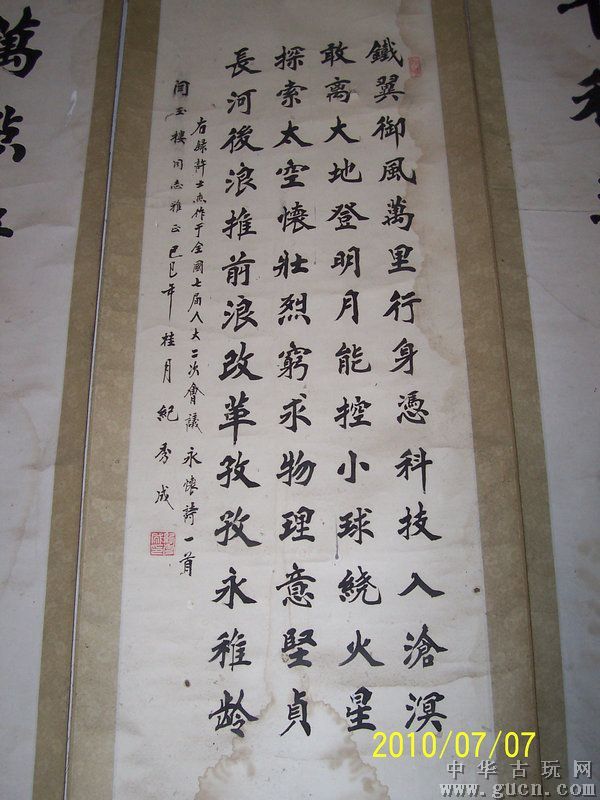 鐵翼御風萬里行身憑科技入滄溟
敢離大地登明月能控小球繞火星
探索太空懷壯烈窮求物理意堅貞
長河後浪推前浪改革孜孜永稚齡
右錄許士杰作于全國七届人大二次會議永懷詩一首
玉樓同志雅正己巳年桂月紀秀成
萬
2010/07/07
中华古玩网
www.gucn.com